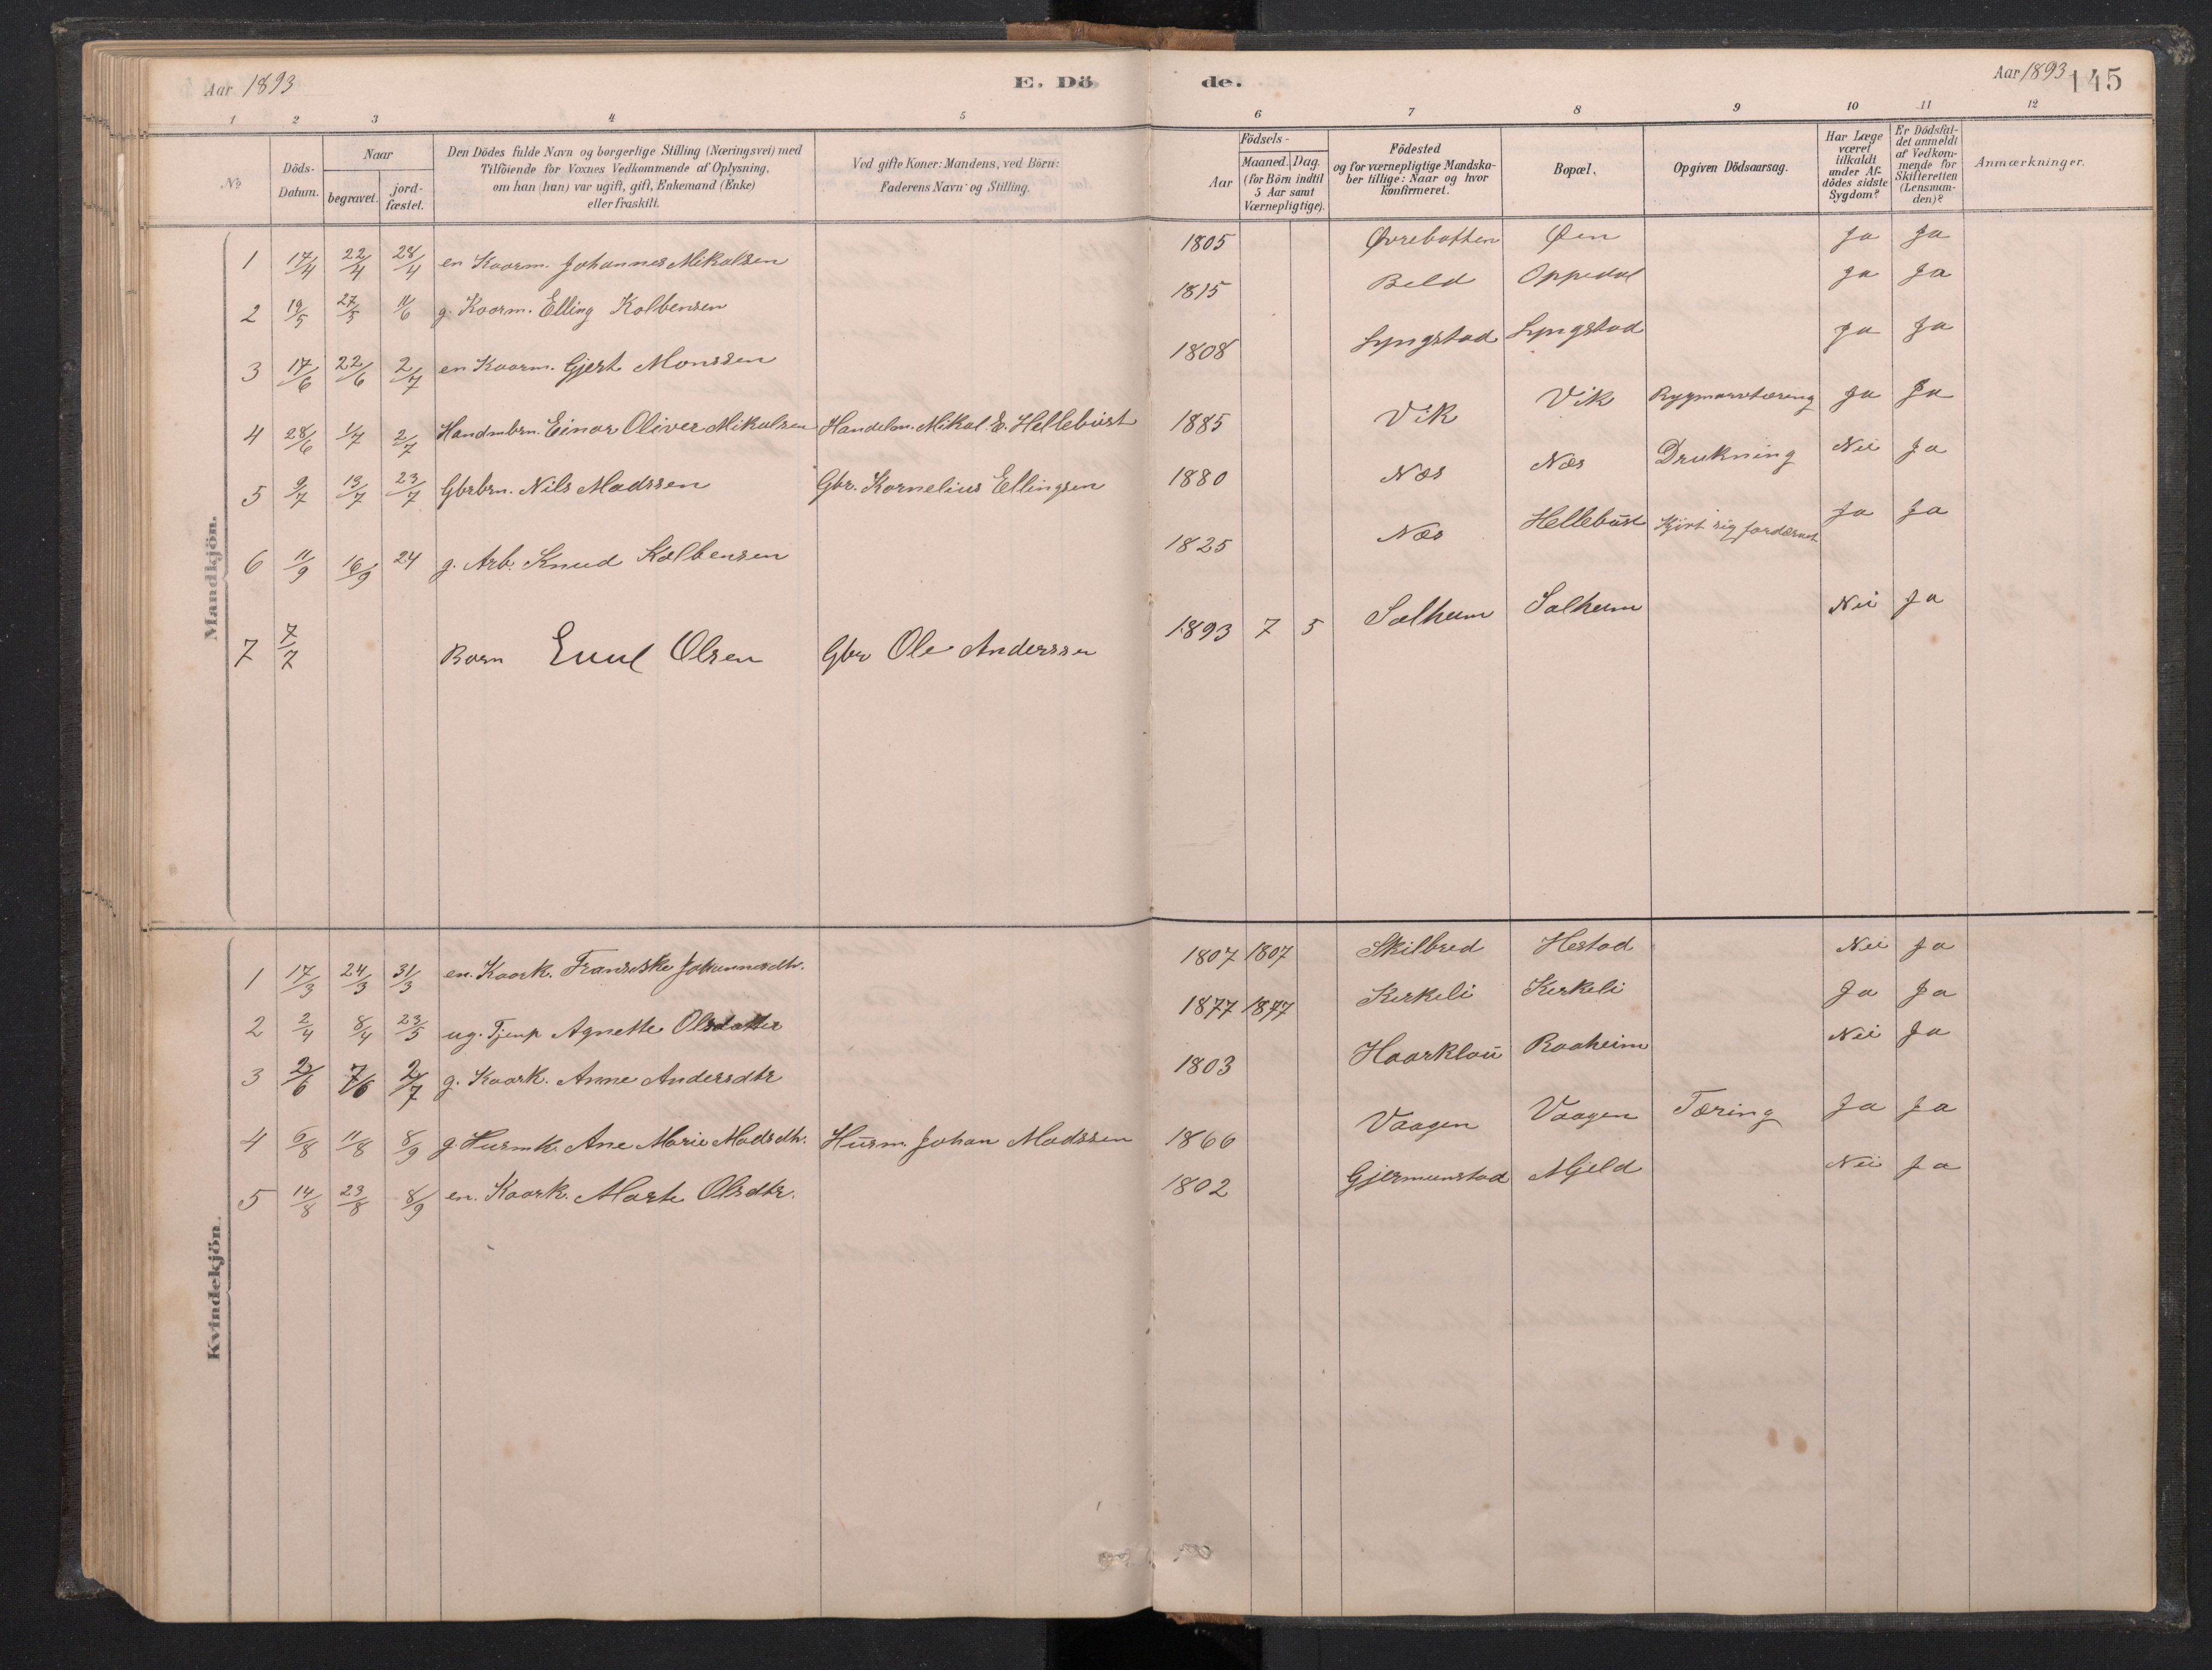 Aar 1893
E. Dö
de.
Aar 1893
145
1 2 3 4 5 6 7 8 9 10 11 12
No
Döds-Datum.
Naar
begravet.
jord-fæstet.
Den Dödes fulde Navn og borgerlige Stilling (Næringsvei) med
Tilföiende for Voxnes Vedkommende af Oplysning,
om han (hun) var ugift, gift, Enkemand (Enke)
eller fraskilt.
Ved gifte Koner: Mandens, ved Börn:
Faderens Navn og Stilling.
Födsels-
Aar
Maaned. Dag.
(for Börn indtil
5 Aar samt
Værnepligtige).
Födested
og for værnepligtige Mandska-
ber tillige: Naar og hvor
konfirmeret.
Bopæl.
Opgiven Dödsaarsag.
Har Læge
været
tilkaldt
under Af-
dödes sidste
Sygdom?
Er Dödsfal-
det anmeldt
af Vedkom-
mende for
Skifteretten
(Lensman-
den)?
Anmærkninger.
Mandkjön.
1 17/4 22/4 28/4 en Kaarm. Johannes Mikalsen 1805 Øvrebotten Øen Ja Ja
2 19/5 27/5 11/6 g. Kaarm. Elling Kolbensen 1815 Beld Oppedal Ja Ja
3 17/6 22/6 2/7 en Kaarm. Gjert Monssen 1808 Lyngstad Lyngstad Ja Ja
4 28/6 1/7 2/7 Handmbrn. Einar Oliver Mikalsen Handelsm. Mikal E. Hellebust 1885 Vik Vik Rygmarvtæring Ja Ja
5 9/7 13/7 23/7 Gbrbrn. Nils Madssen Gbr. Kornelius Ellingsen 1880 Næs Næs Drukning Nei Ja
6 11/9 16/9 24 g. Arb. Knud Kolbensen 1825 Næs Hellebust Kjørt sig fordærvet Ja Ja
7 7/7 Barn Emil Olsen Gbr Ole Anderssen 1893 7 5 Solheim Solheim Nei Ja
Kvindekjön.
1 17/3 24/3 31/3 en. Kaark. Franciske Johannesdtr. 1807 1807 Skilbred Hestad Nei Ja
2 2/4 8/4 23/5 ug. Tjenp Agnette Olsdatter 1877 1877 Kirkeli Kirkeli Ja Ja
3 2/6 7/6 2/7 g. Kaark. Anne Andersdtr 1803 Haarklau Raaheim Nei Ja
4 5/8 11/8 8/9 g. Husmk. Ane Marie Madsdtr. Husm. Johan Madssen 1866 Vaagen Vaagen Tæring Ja Ja
5 14/8 23/8 8/9 en. Kaark. Marte Olsdtr. 1802 Gjermunstad Mjeld Nei Ja